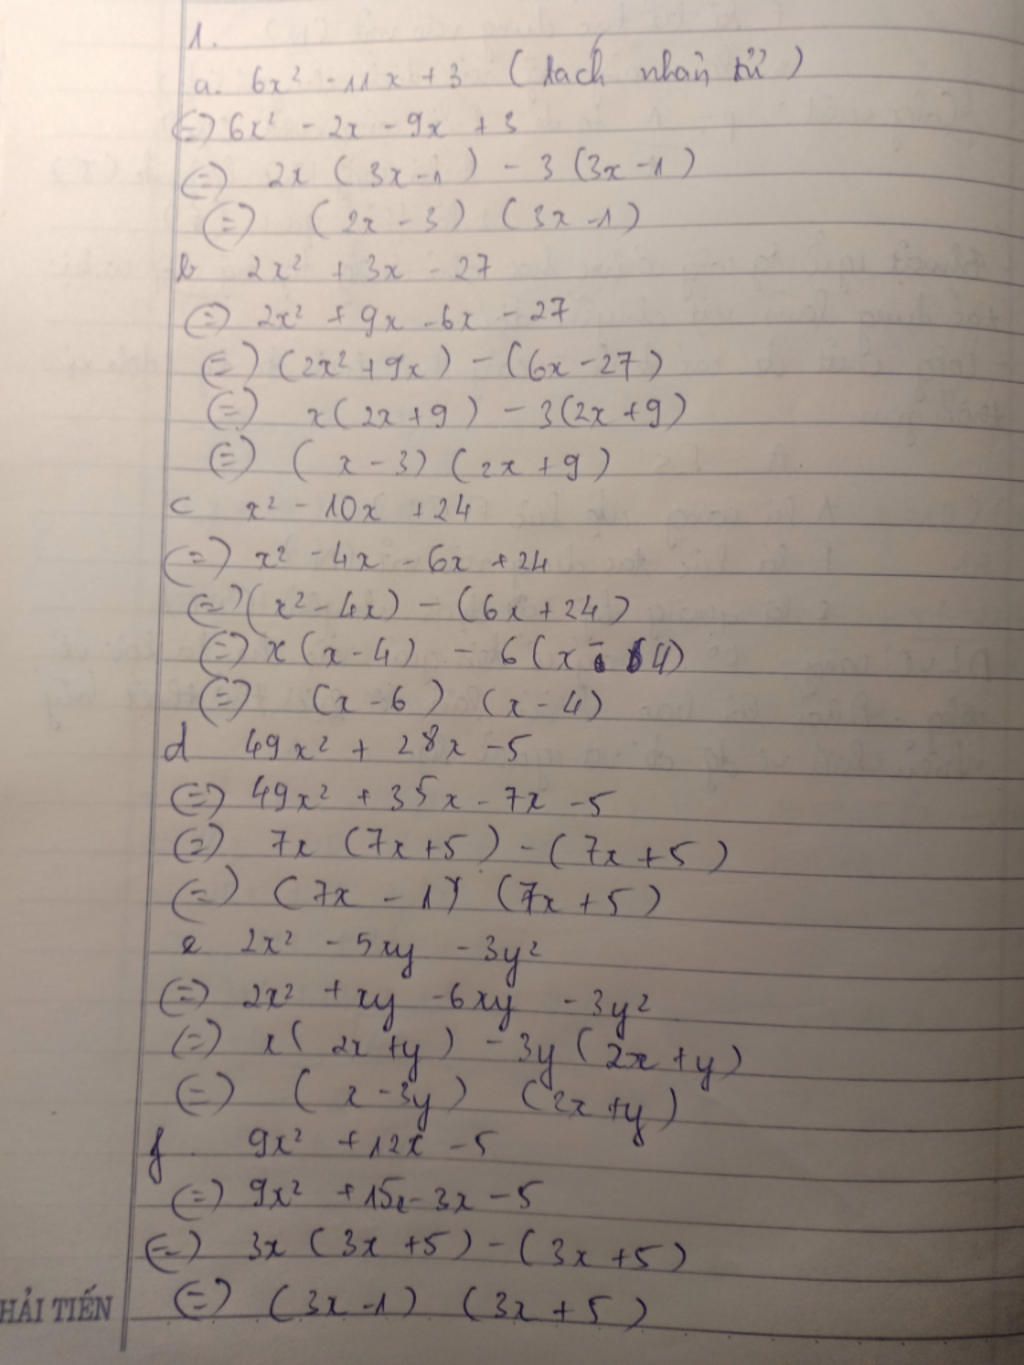 1.
a. 6x² - 11x + 3 (tách nhân tử)
(=) 6x² - 2x - 9x + 3
(=) 2x (3x - 1) - 3 (3x - 1)
(=) (2x - 3) (3x - 1)
b 2x² + 3x - 27
(=) 2x² + 9x - 6x - 27
(=) (2x² + 9x) - (6x - 27)
(=) x(2x + 9) - 3(2x + 9)
(=) (x - 3) (2x + 9)
c x² - 10x + 24
(=) x² - 4x - 6x + 24
(=) (x² - 4x) - (6x + 24)
(=) x(x - 4) - 6(x - 4)
(=) (x - 6) (x - 4)
d 49x² + 28x - 5
(=) 49x² + 35x - 7x - 5
(=) 7x (7x + 5) - (7x + 5)
(=) (7x - 1) (7x + 5)
e 2x² - 5xy - 3y²
(=) 2x² + xy - 6xy - 3y²
(=) x(2x + y) - 3y(2x + y)
(=) (x - 3y) (2x + y)
f. 9x² + 12x - 5
(=) 9x² + 15x - 3x - 5
(=) 3x (3x + 5) - (3x + 5)
(=) (3x - 1) (3x + 5)
HẢI TIẾN